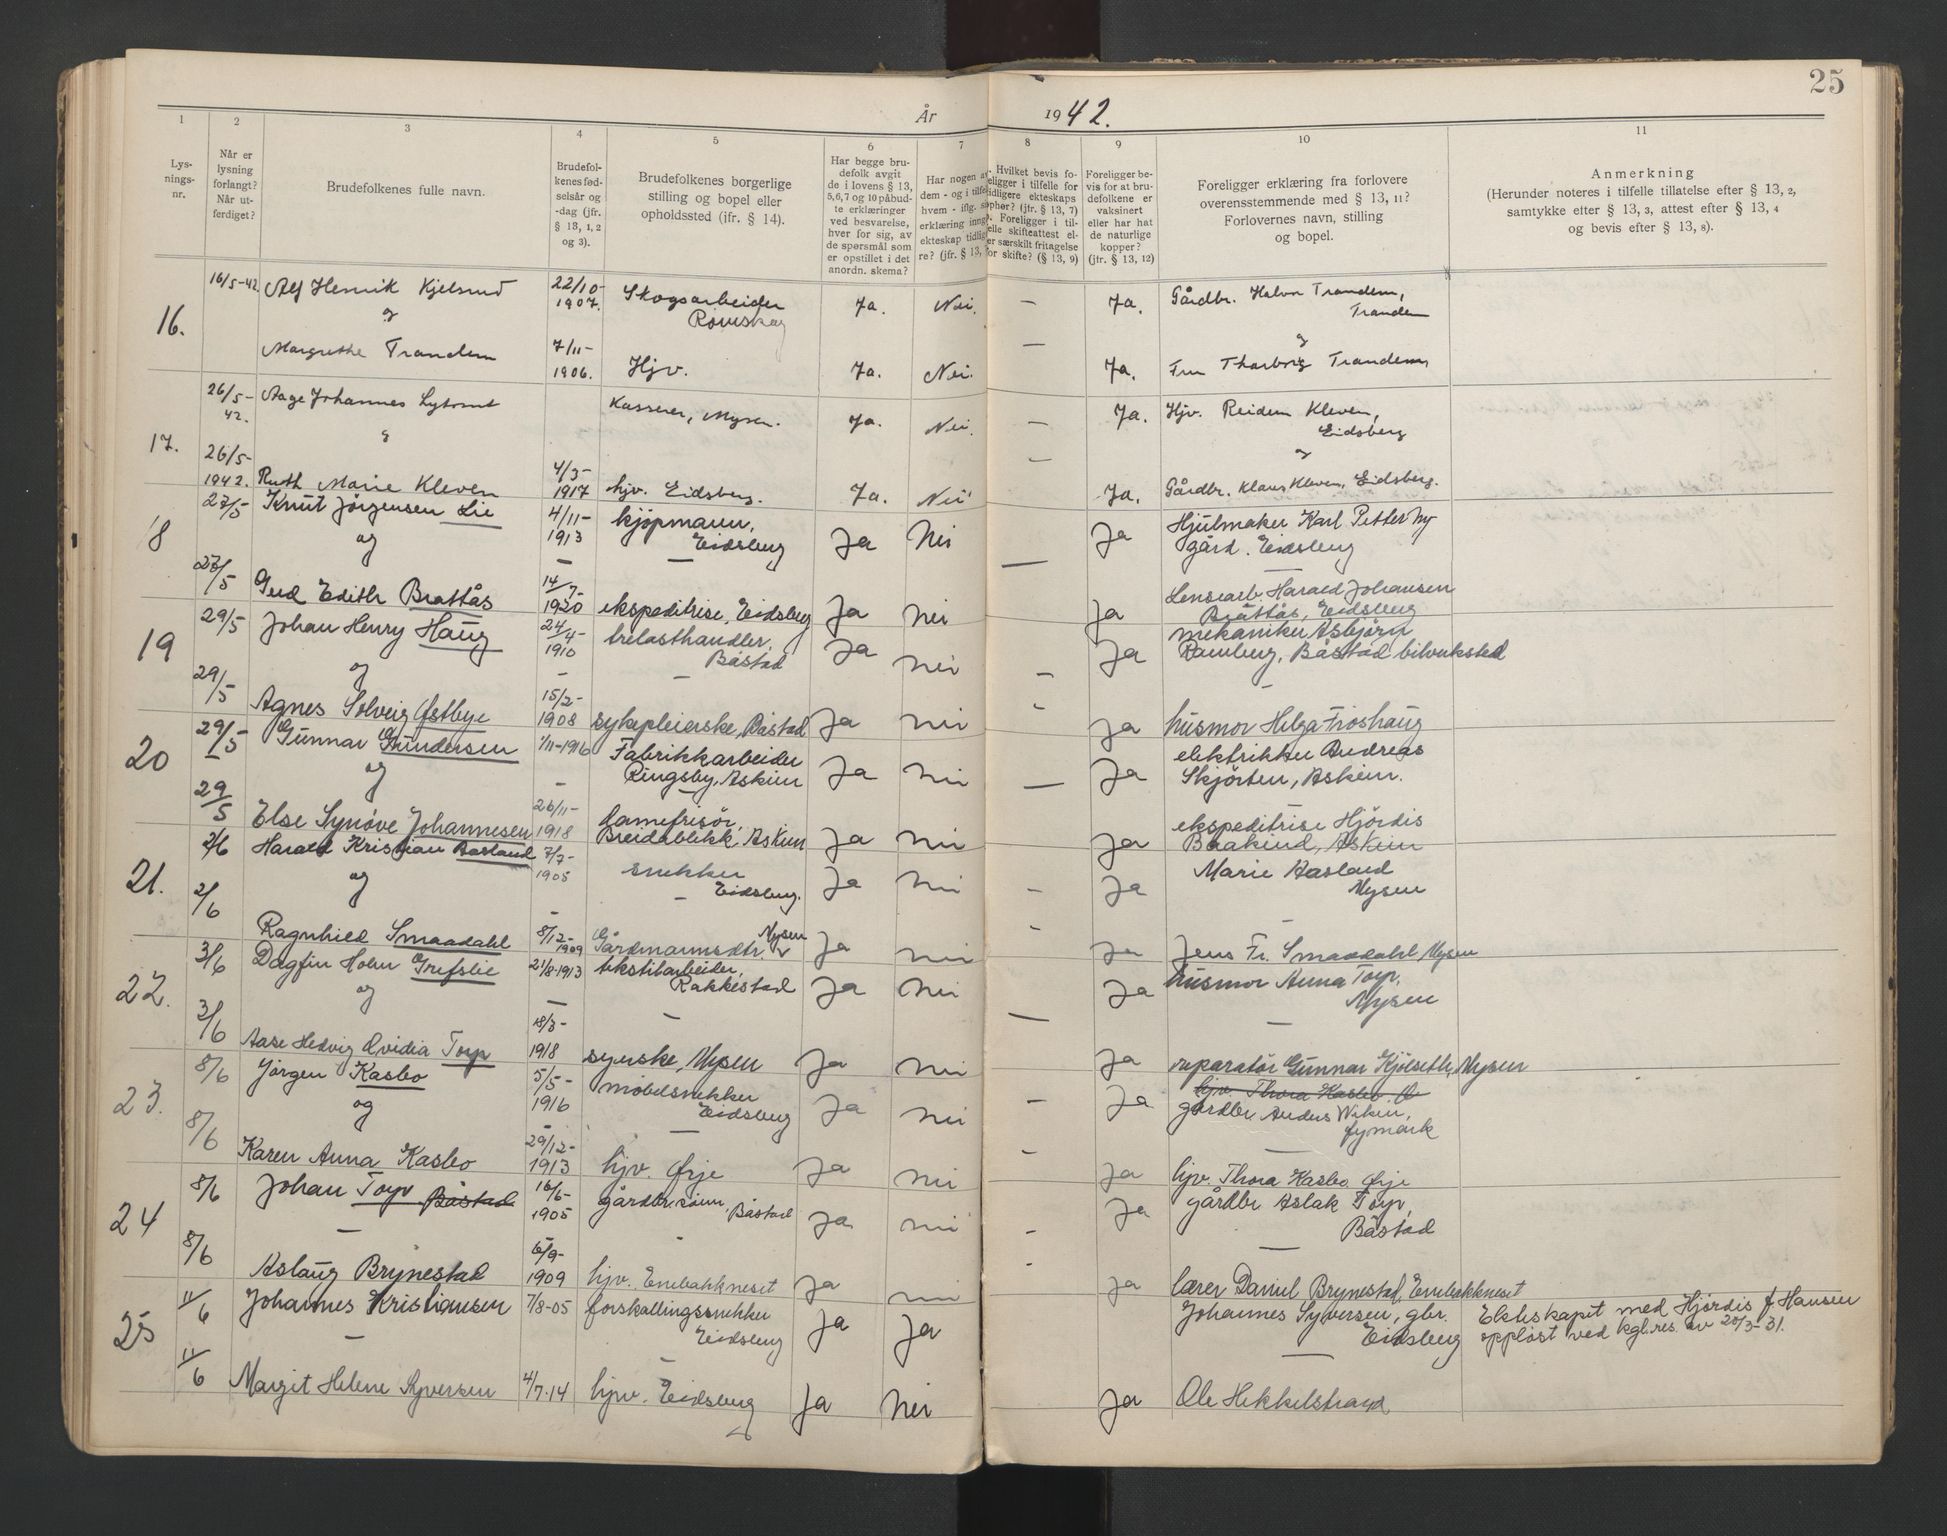 25
År 1942.
1 2 3 4 5 6 7 8 9 10 11
Lys-
nings-
nr.
Når er
lysning
forlangt?
Når ut-
ferdiget?
Brudefolkenes fulle navn.
Brudefol-
kenes fød-
selsår og
-dag (jfr.
§ 13, 1, 2
og 3).
Brudefolkenes borgerlige
stilling og bopel eller
opholdssted (ifr. § 14).
Har begge bru-
defolk avgit
de i lovens § 13,
5, 6, 7 og 10 påbud-
te erklæringer
ved besvarelse,
hver for sig, av
de spørsmål som
er opstillet i det
anordn. skema?
Har nogen av
dem - og i tilfe
hvem - iflg.
erklæring inng
ekteskap tidlig
re? (jfr. § 13,
Hvilket bevis fo-
religger i tilfelle for
tidligere ekteskaps
ophør? (jfr. § 13, 7)
Foreligger i til-
elle skifteattest el-
er særskilt fritagelse
for skifte? (§ 13, 9)
Foreligger be-
vis for at bru-
defolkene er
vaksinert
eller har hat
de naturlige
kopper?
(jfr. § 13, 12)
Foreligger erklæring fra forlovere
overensstemmende med § 13, 11?
Forlovernes navn, stilling
og bopel.
Anmerkning
(Herunder noteres i tilfelle tillatelse efter § 13, 2,
samtykke efter § 13, 3, attest efter § 13, 4
og bevis efter § 13, 8).
16. 16/5-42 Alf Henrik Kjelsrud 22/10-1907. Skogsarbeider Rømskog Ja. Nei. — Ja. Gårdbr. Halvor Trandem, Trandem
og — og
Margrethe Trandem 7/11-1906. Hjv. Ja. Nei. Ja. Fru Thorborg Trandem,
17. 26/5-42. Aage Johannes Kasserer, Mysen. Ja. Nei. — Ja. Hjv. Reidun Kleven, Eidsberg
og — og
26/5-1942. Ruth Marie Kleven 4/3-1917 hjv. Eidsberg. Ja. Nei Ja. Gårdbr. Klaus Kleven, Eidsberg.
18 27/5 Knut Jörgensen Lie 4/11-1913 kjøpmann, Eidsberg Ja Nei Ja Hjulmaker Karl Petter Ny-
gård. Eidsberg
og — — — —
27/5 Gerd Edith Brattås 14/7-1920 ekspeditrise, Eidsberg Ja nei Ja Lensearb. Harald Johansen
Brattås, Eidsberg
19 29/5 Johan Henry Haug 24/4-1910 trelasthandler, Båstad Ja nei — Ja mekaniker Asbjörn
Ramberg, Båstad bilverksted
og — — — —
29/5 Agnes Solveig Østbye 15/2-1908 sykepleierske, Båstad Ja nei Ja husmor Helga Froshaug
20 29/5 Gunnar Gundersen 1/11-1916 Fabrikkarbeider
Ringsby, Askim Ja nei — Ja elektriker Andreas
Skjörten, Askim.
og —
29/5 Else Synöve Johannesen 26/11-1918 damefrisör,
Breidablikk, Askim Ja nei Ja ekspeditrise Hjördis
Baakind, Askim
21. 2/6 Harald Kristian Aasland 7/7-1905 snekker Eidsberg. Ja nei — Ja Marie Aasland Mysen
og — — — —
2/6 Ragnhild Smaadahl 8/12-1909 Gårdmannsdtr. Mysen Ja nei Ja Jens Fr. Smaadahl, Mysen
22. 3/6 Dagfin Holm Grefslie 21/8-1913 tekstilarbeider, Rakkestad Ja nei Ja husmor Anna Torp, Mysen
og — — — —
3/6 Aase Hedvig Ovidia Torp 18/3-1918 syerske, Mysen Ja nei Ja reparatör Gunnar Kjölseth, Mysen
23. 8/6 Jörgen Kasbo 5/5-1916 möbelsnekker Eidsberg Ja nei — Ja hjv. Thora Kasbo Ø
gårdbr Anders Viken, fymark
og — — —
8/6 Karen Anna Kasbo 29/12-1913 hjv. Ørje Ja nei Ja hjv. Thora Kasbo Ørje
24 8/6 Johan Torp Båstad 16/6-1905 gårdbr.sönn, Båstad Ja nei — Ja gårdbr Aslak Torp, Båstad
— — — —
8/6 Aslaug Brynestad 6/9-1909 hjv. Enebakkneset Ja nei Ja lærer Daniel Brynestad, Enebakkneset
25 11/6 Johannes Kristiansen 7/8-05 forskallingssnekker Eidsberg Ja Ja Johannes Syversen, gbr. Eidsberg Ekteskapet med Hjördis f. Hansen
opplöst ved kgl.res. av 20/3-31.
— — —
11/6 Margit Helene Syversen 4/7-14 hjv. Eidsberg Ja Nei Ja Ole Hekkelstrand